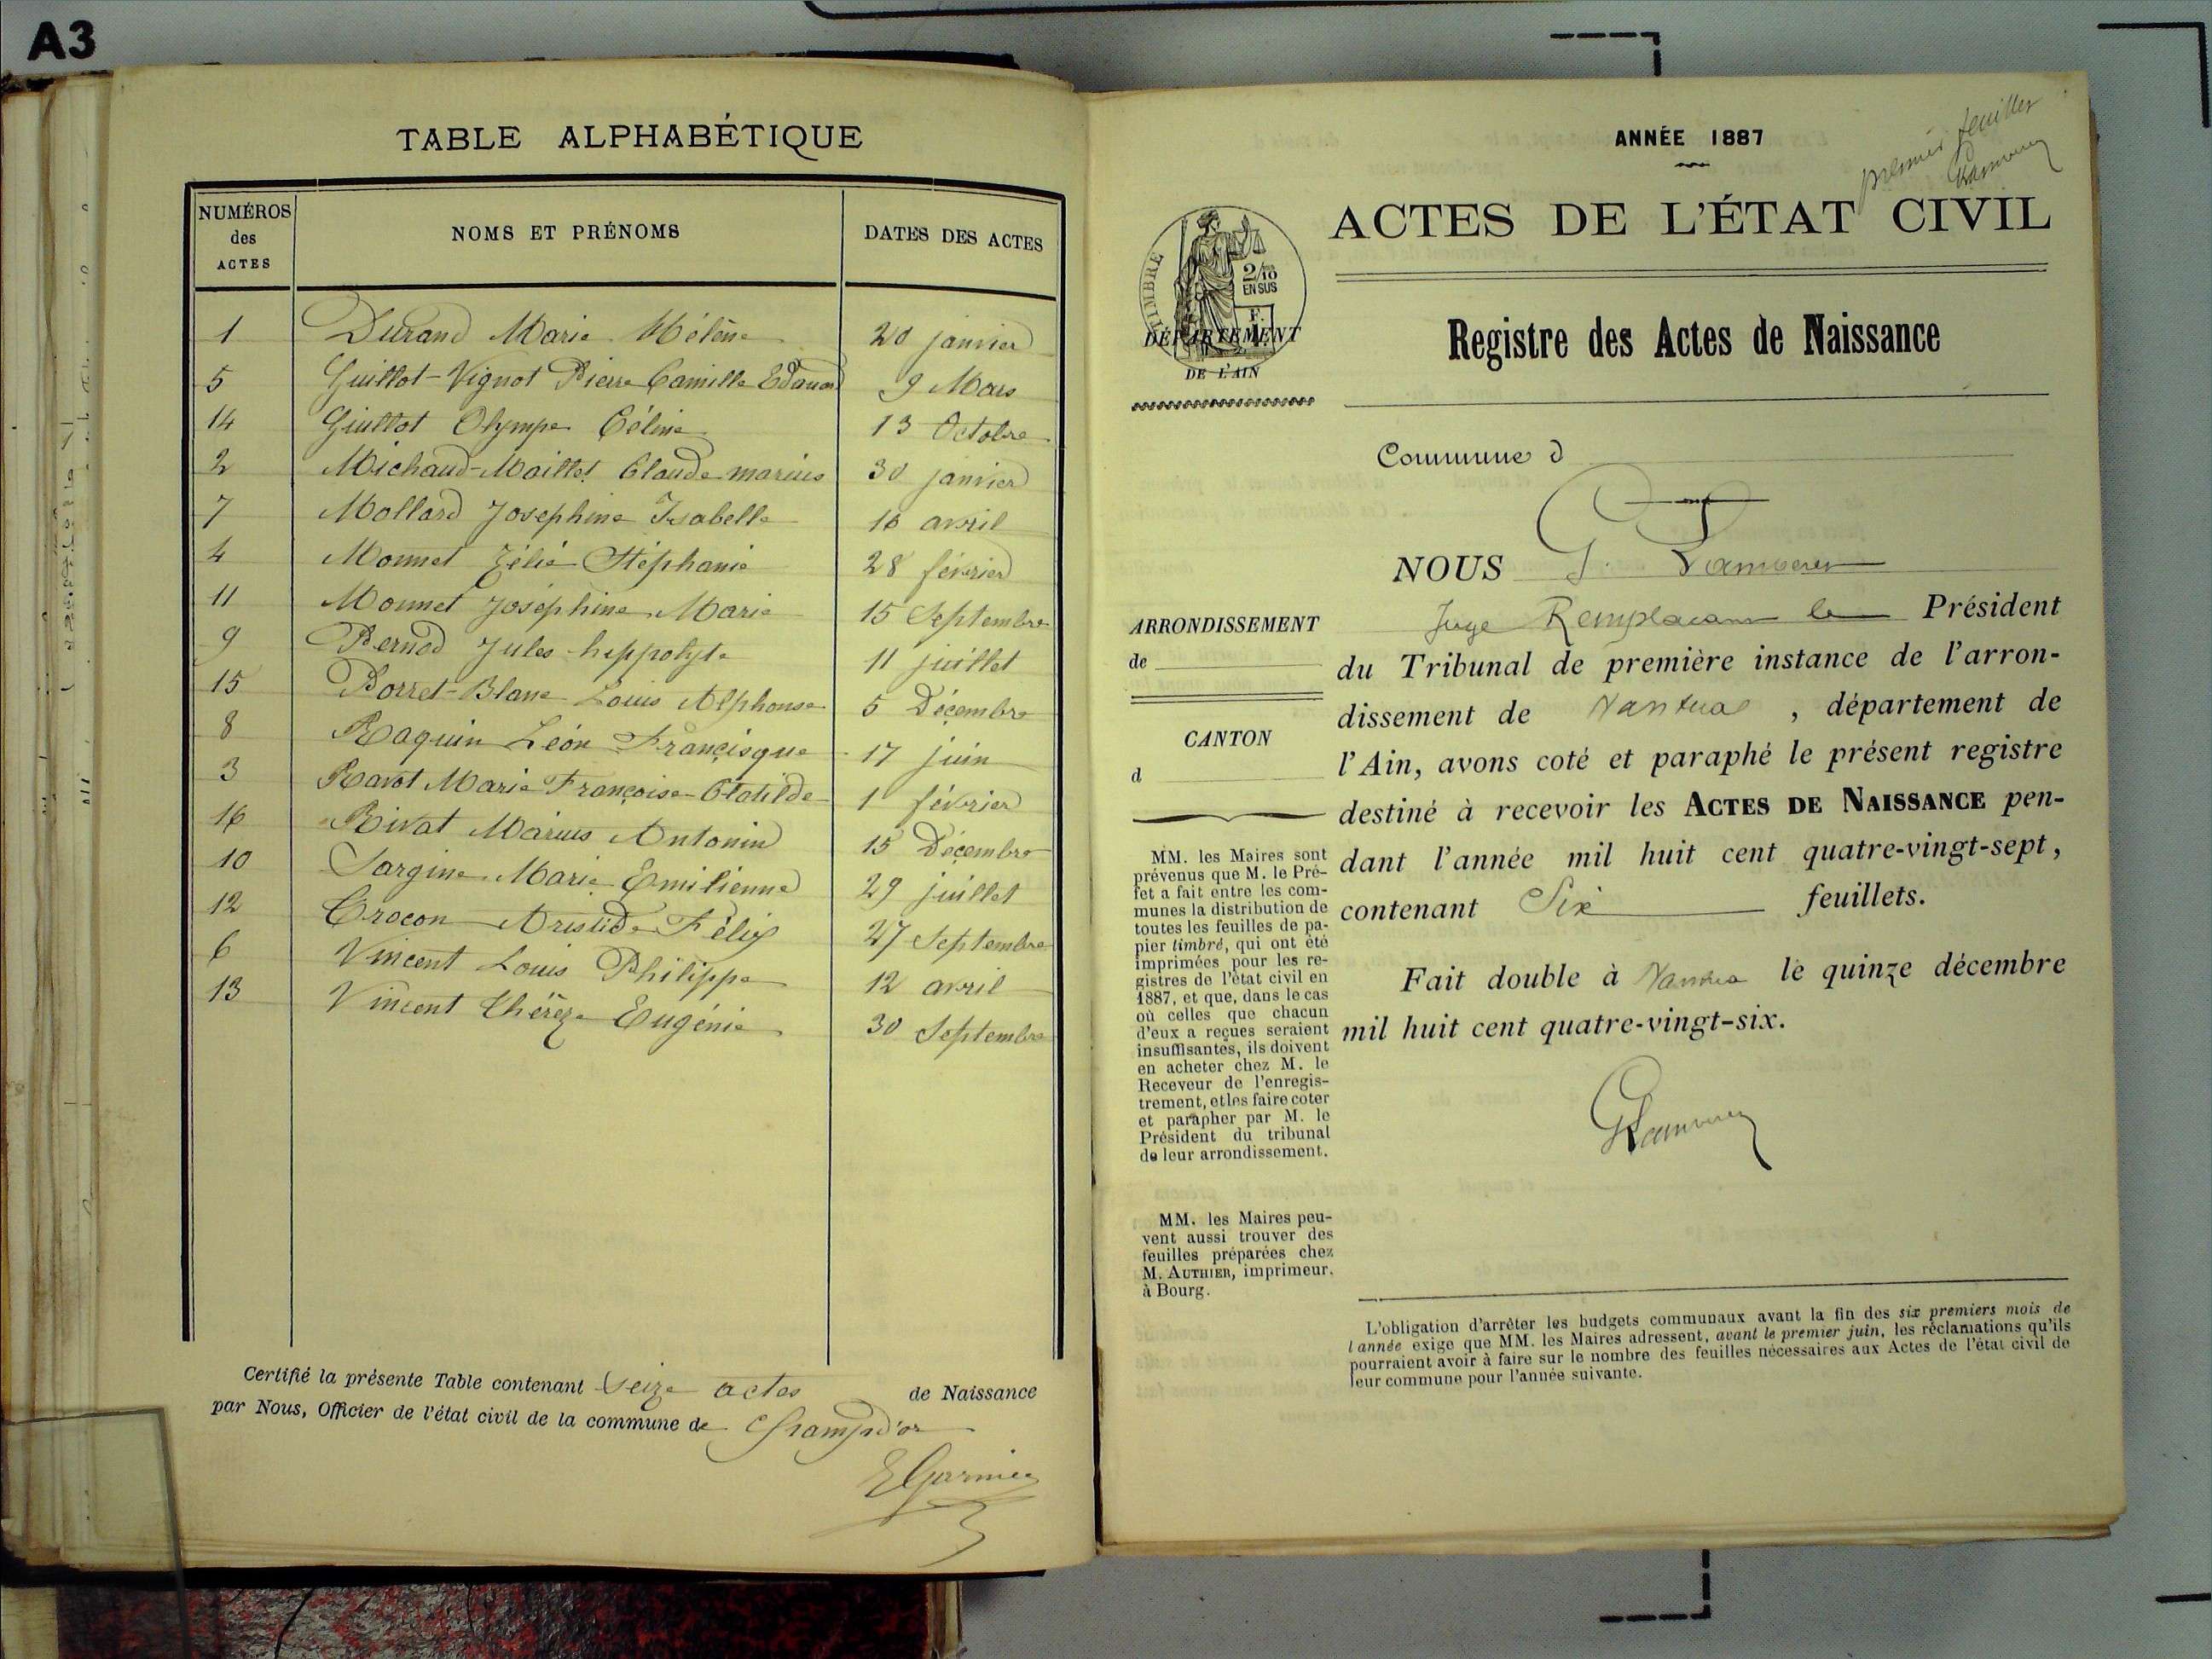 A3
TABLE ALPHABÉTIQUE
NUMÉROS des ACTES
NOMS ET PRÉNOMS
DATES DES ACTES
1 Durand Marie Hélène 20 janvier
5 Guillot-Vignot Pierre Camille Edouard 9 Mars
14 Guillot Olympe Céline 13 Octobre
2 Michaud-Maillet Claude marius 30 janvier
7 Mollard Josephine Isabelle 16 avril
4 Monnet Zélie Stéphanie 28 février
11 Monnet Joséphine Marie 15 Septembre
9 Pernod Jules hippolyte 11 juillet
15 Porret-Blanc Louis Alphonse 5 Décembre
8 Raquin Léon Françisque 17 juin
3 Ravot Marie Françoise Clotilde 1 février
16 Rivat Marius Antonin 15 Décembre
10 Sargine Marie Emilienne 29 juillet
12 Crocon Aristide Félix 27 Septembre
6 Vincent Louis Philippe 12 avril
13 Vincent Thérèze Eugénie 30 Septembre
Certifié la présente Table contenant Seize actes de Naissance
par Nous, Officier de l'état civil de la commune de Champd'or
EGarnier
premier feuillet
ANNÉE 1887
ACTES DE L'ÉTAT CIVIL
TIMBRE
2/10
EN SUS
DÉPARTEMENT
DE L'AIN
Registre des Actes de Naissance
Commune d
NOUS G.
Juge Remplaçant le Président
du Tribunal de première instance de l'arron-
dissement de Nantua, département de
l'Ain, avons coté et paraphé le présent registre
destiné à recevoir les ACTES DE NAISSANCE pen-
dant l'année mil huit cent quatre-vingt-sept,
contenant Six feuillets.
Fait double à Nantua le quinze décembre
mil huit cent quatre-vingt-six.
ARRONDISSEMENT
de
CANTON
d
MM. les Maires sont
prévenus que M. le Pré-
fet a fait entre les com-
munes la distribution de
toutes les feuilles de pa-
pier timbré, qui ont été
imprimées pour les re-
gistres de l'état civil en
1887, et que, dans le cas
où celles que chacun
d'eux a reçues seraient
insuffisantes, ils doivent
en acheter chez M. le
Receveur de l'enregis-
trement, et les faire coter
et parapher par M. le
Président du tribunal
de leur arrondissement.
MM. les Maires peu-
vent aussi trouver des
feuilles préparées chez
M. AUTHIER, imprimeur,
à Bourg.
L'obligation d'arrêter les budgets communaux avant la fin des six premiers mois de
l'année exige que MM. les Maires adressent, avant le premier juin, les réclamations qu'ils
pourraient avoir à faire sur le nombre des feuilles nécessaires aux Actes de l'état civil de
leur commune pour l'année suivante.